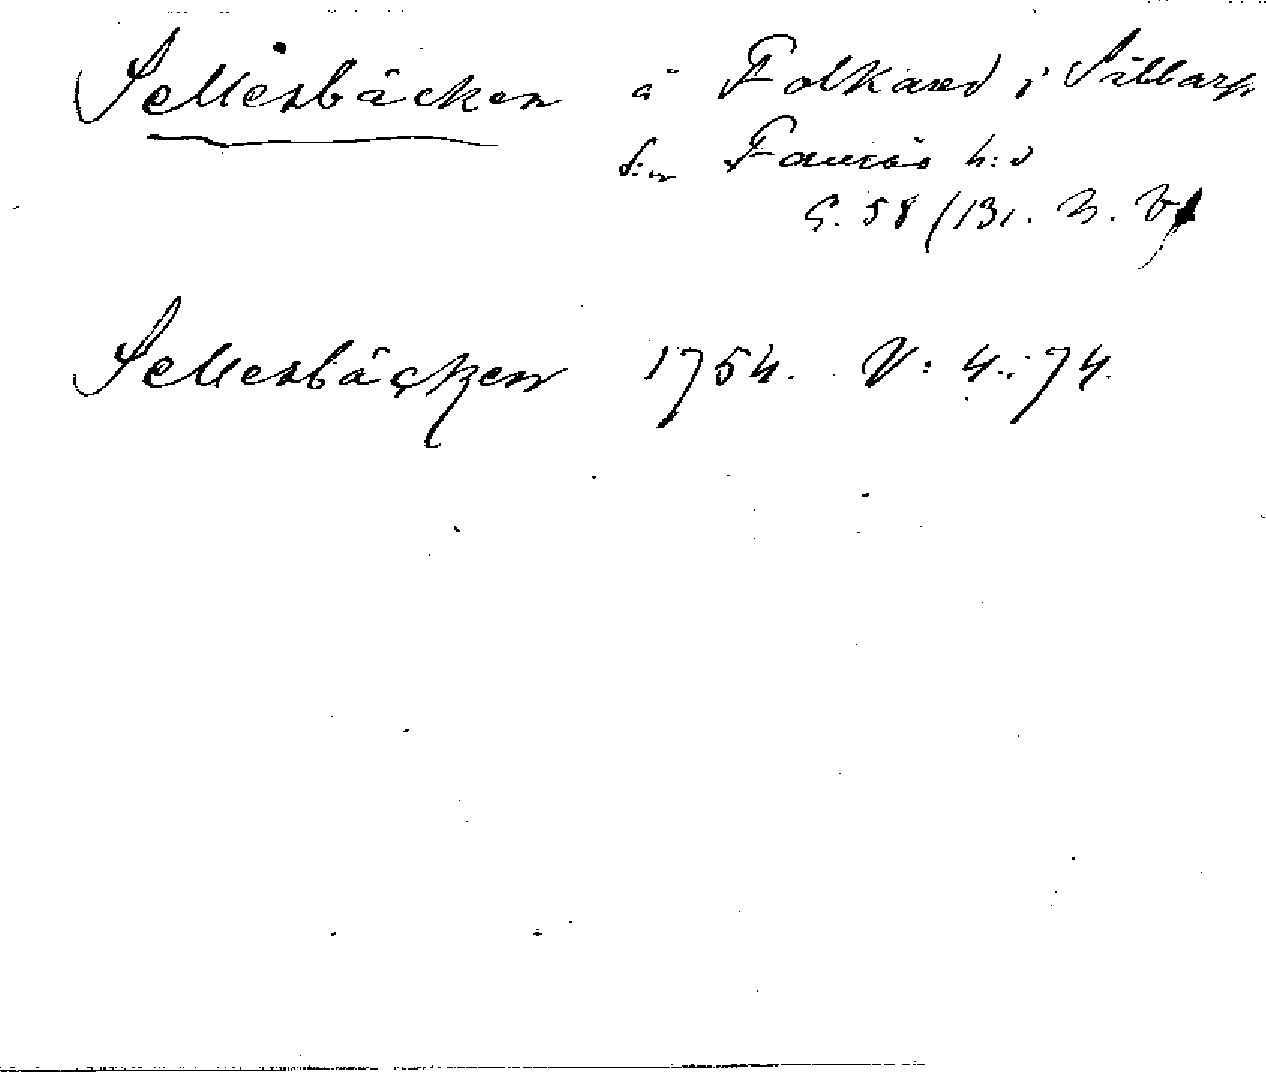 Sellersbäcken å Folkared i Sällarp
s:n Faurås h:d
S. 58 (Bl. 3. b)
Sellersbäcken 1754. V: 4: 74.